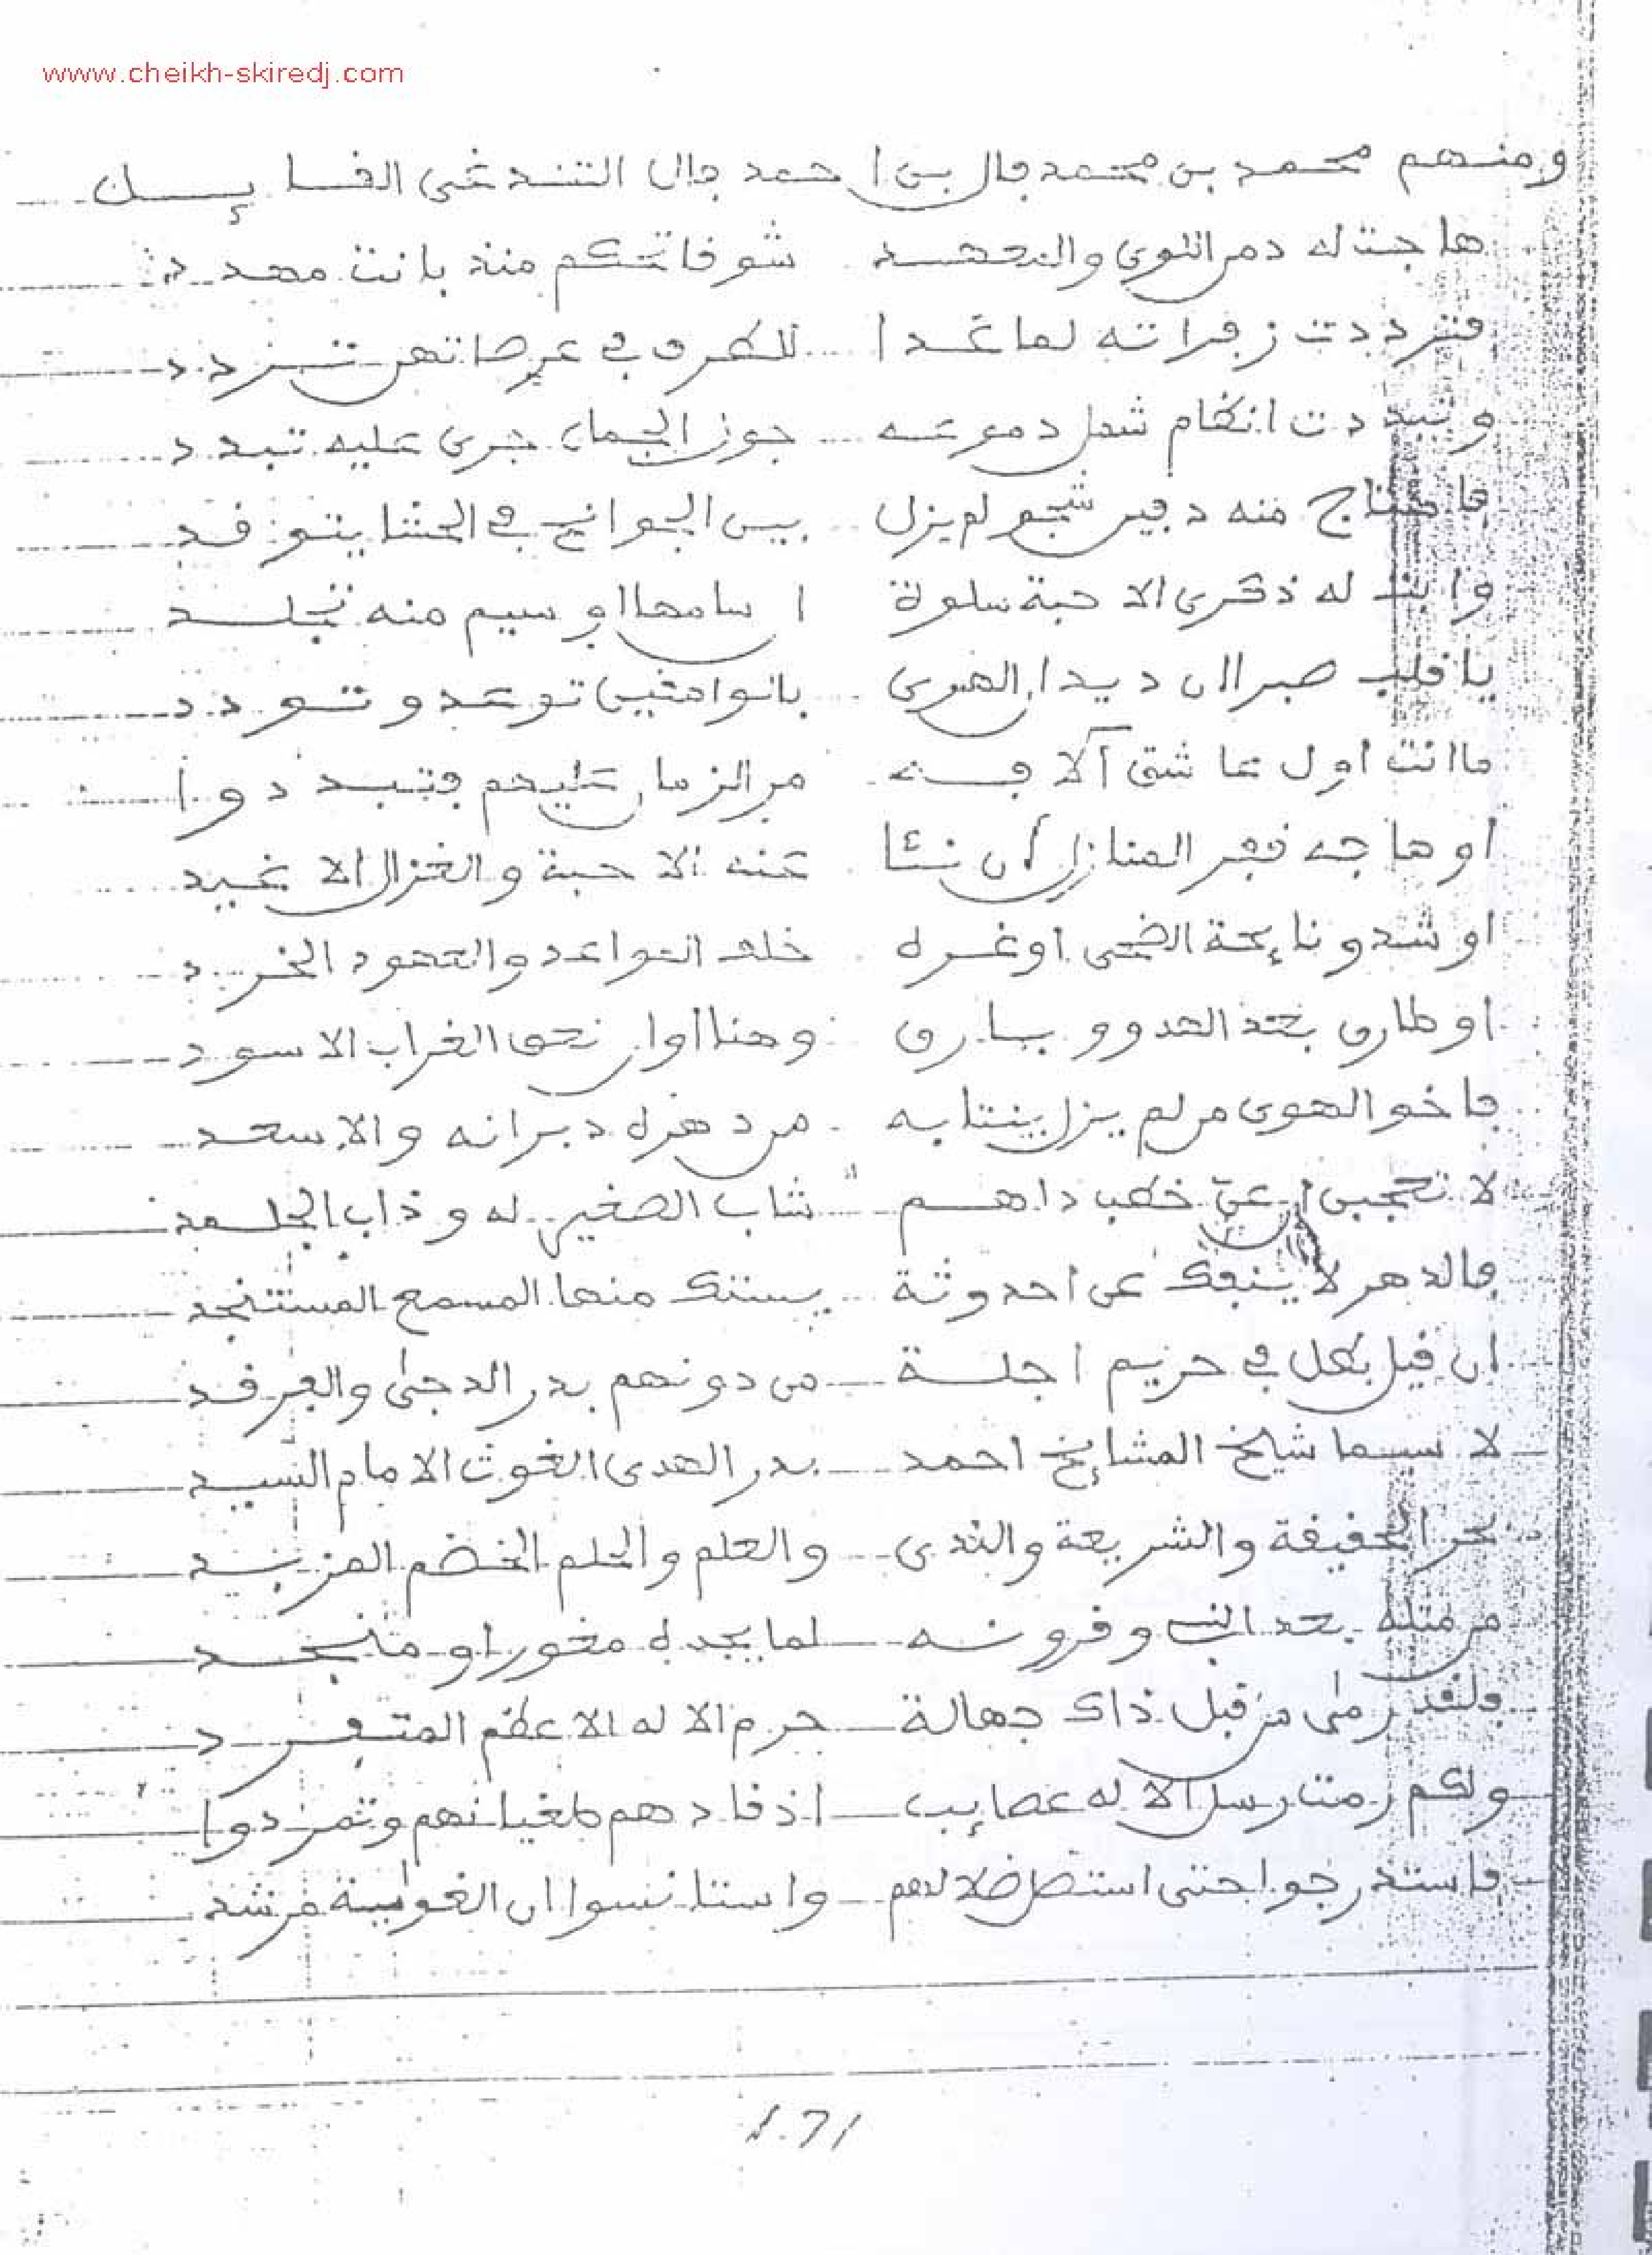 www.cheikh-skiredj.com
ومنهم محمد بن محمد فال بن احمد فال التندغى القايل
هاجت له دمن اللوى والتعهد شوقا تحكم منذ بانت مهدد
فترددت زفراته لما غدا للطرف في عرصاتهن تردد
وتبددت انظام شمل دموعه جون الجمان جرى عليه تبدد
فاهتاج منه دفين شجو لم يزل بين الجوانح في الحشا يتوقد
وابت له ذكرى الاحبة سلوة اسامها او سيم منه تجلد
يا قلب صبرا ان ديدان الهوى بانوا توعد وتودد
ما انت اول عاشق آلافه مر الزمان عليهم فتبددوا
او هاجه قفر المنازل أن نئا عنه الاحبة والغزال الاغيد
او شدو نايحة الضحى او غره خلف التواعد والعهود الخرد
او طارق بعد الهدو وبارق وهنا أوان نعق الغراب الاسود
فاخو الهوى من لم يزل ينتابه من دهره دبرانه والاسعد
لا تعجبى إن عنّ خطب داهم شاب الصغير له وذاب الجلمد
فالدهر لا ينفك عن احدوثة يستك منها المسمع المستنجد
ان قيل بطل في حريم اجلة من دونهم بدر الدجى والفرقد
لا سيما شيخ المشايخ احمد بدر الهدى الغوث الامام السيد
بحر الحقيقة والشريعة والندى والعلم والحلم الخضم المزبد
من مثله بعد النبي وقرونه لما يجده مغور او منجد
ولقد رمى من قبل ذاك جهالة حرم الاله الاعظم المتفرد
ولكم رمت رسل الاله عصايب اذ قادهم طغيانهم وتمردوا
فاستدرجوا حتى استطل ضلالهم واستانسوا ان الغواية مرشد